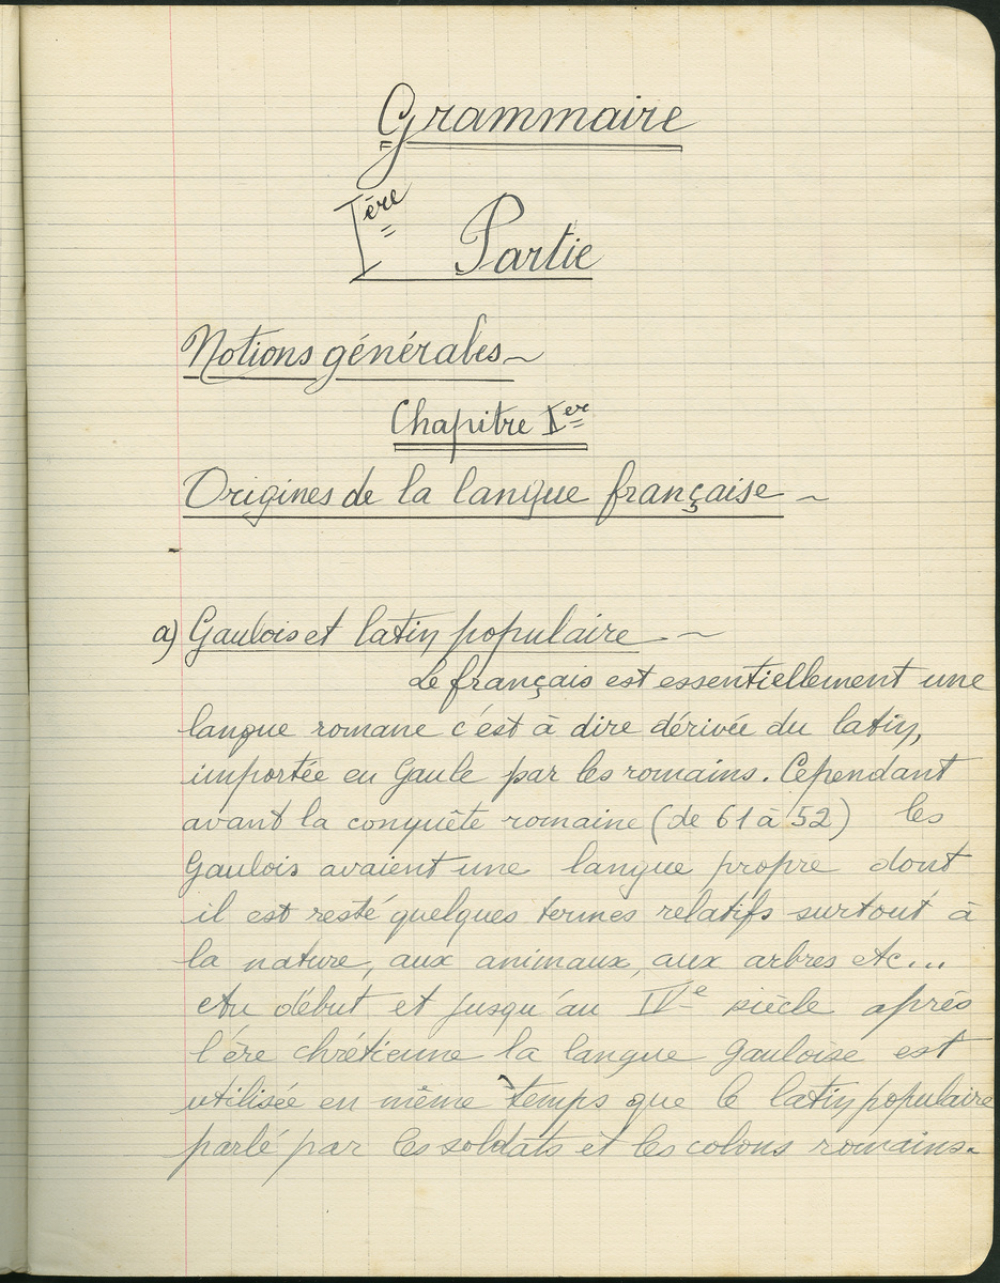 Grammaire
Ière Partie
Notions générales
Chapitre Ier
Origines de la langue française
a) Gaulois et latin populaire
Le français est essentiellement une
langue romane c'est à dire dérivée du latin,
importée en Gaule par les romains. Cependant
avant la conquête romaine (de 61 à 52) les
Gaulois avaient une langue propre dont
il est resté quelques termes relatifs surtout à
la nature, aux animaux, aux arbres etc...
Au début et jusqu'au IVe siècle après
l'ère chrétienne la langue gauloise est
utilisée en même temps que le latin populaire
parlé par les soldats et les colons romains.